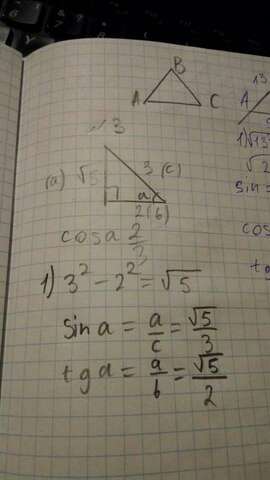 B
A C
№3
(a) √5 3 (c)
a
2(b)
cos a 2/3
1) 3² - 2² = √5
sin a = a/c = √5/3
tg a = a/b = √5/2
13
A
1) √13
√2
sin =
cos
tg